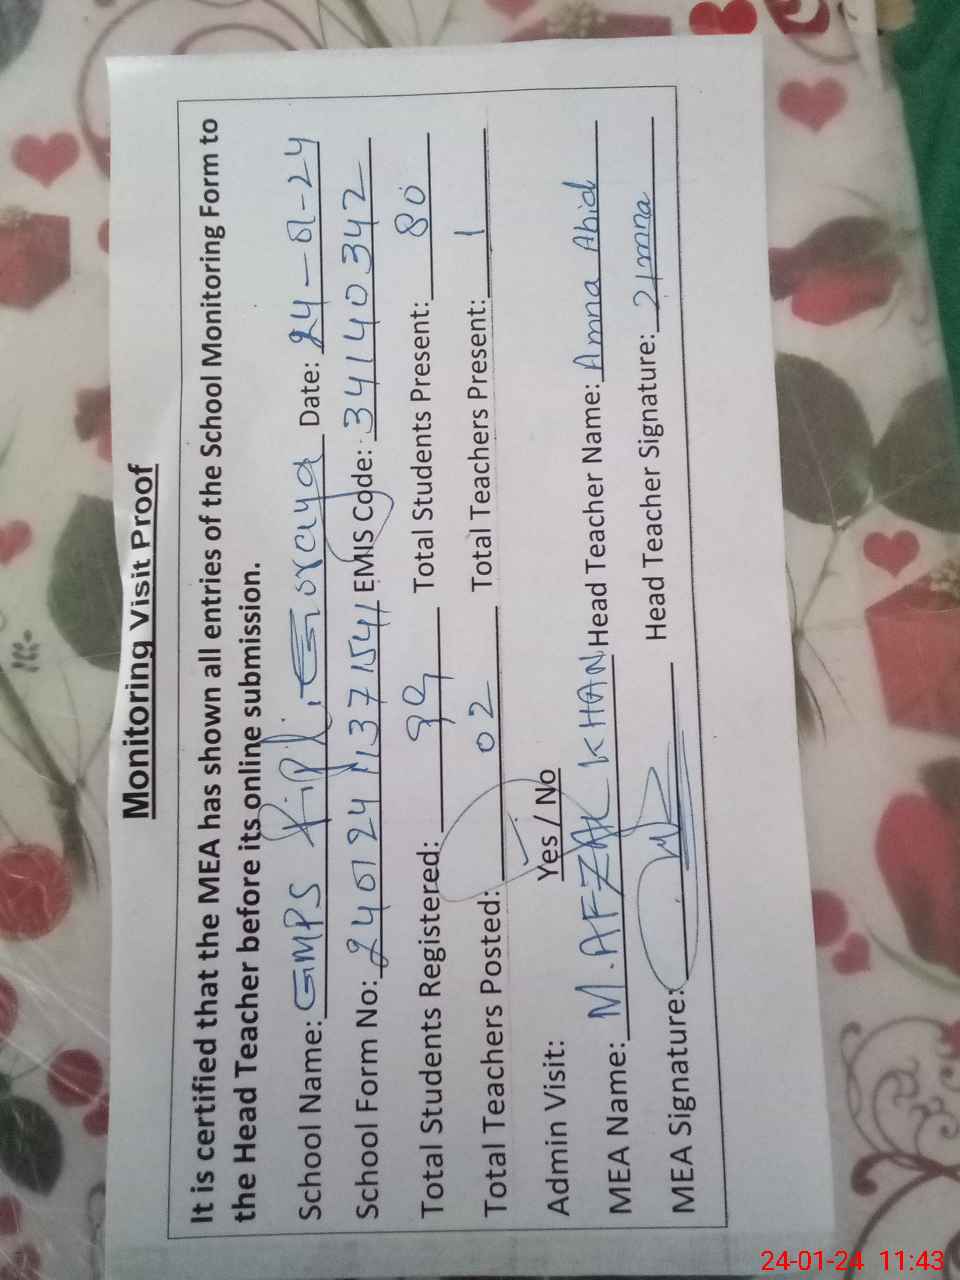 Monitoring Visit Proof
It is certified that the MEA has shown all entries of the School Monitoring Form to
the Head Teacher before its online submission.
School Name: GMPS Goraya Date: 24-01-24
School Form No: 240124 137154 EMIS Code: 34140342
Total Students Registered: 99 Total Students Present: 80
Total Teachers Posted: 02 Total Teachers Present: 1
Admin Visit: Yes / No
MEA Name: M. AFZAL KHAN Head Teacher Name: Amna Abid
MEA Signature: Head Teacher Signature: Amna
24-01-24 11:43